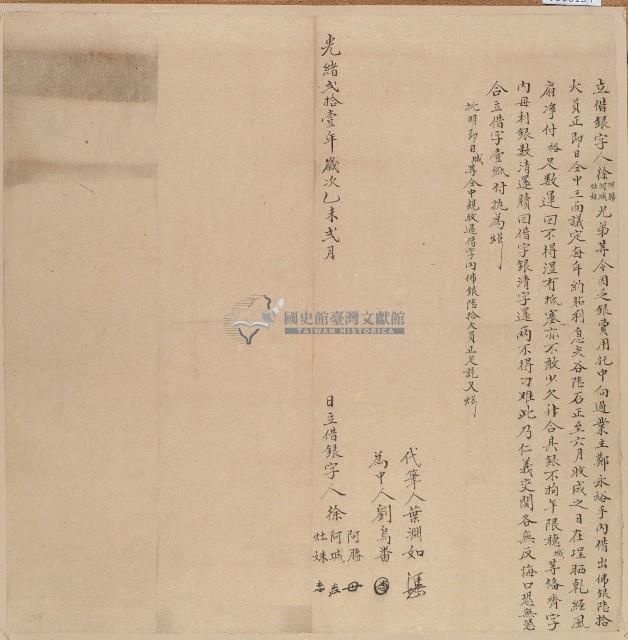 立借銀字人徐阿勝阿城灶妹兄弟等今因乏銀費用托中向過業主鄭永裕手內借出佛銀陸拾
大員正即日仝中三面議定每年約貼利息炎谷陸石正至六月收成之日在埕晒乾經風
扇净付裕足數運回不得湿冇抵塞亦不敢少欠升合其銀不拘年限聽城等俻齊字
內母利銀數清還贖回借字銀清字還兩不得刁难此乃仁義交関各無反悔口恐無憑
合立借字壹紙付执為炤
批明即日城等仝中親收過借字內佛銀陸拾大員正足訖又炤
代筆人葉淵如
為中人劉鳥番
光緒弍拾壹年歲次乙未弍月 日立借銀字人徐阿勝阿城灶妹
國史館臺灣文獻館
TAIWAN HISTORICA